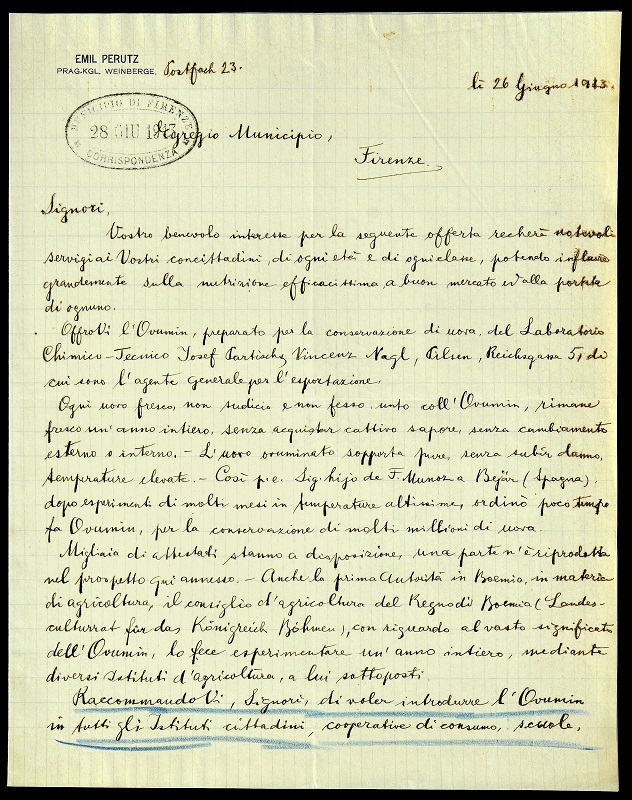 EMIL PERUTZ
PRAG-KGL. WEINBERGE, Postfach 23.
li 26 Giugno 1913.
MUNICIPIO DI FIRENZE
28 GIU 1913
CORRISPONDENZA
Egregio Municipio,
Firenze.
Signori,
Vostro benevolo interesse per la seguente offerta recherà notevoli
servigi ai Vostri concittadini, di ogni età e di ogni classe, potendo influire
grandemente sulla nutrizione efficacissima a buon mercato ed alla portata
di ognuno.
OffroVi l'Ovumin, preparato per la conservazione di uova, del Laboratorio
Chimico-Tecnico Josef Partisch, Vincenz Nagl, Pilsen, Reichsgasse 5, di
cui sono l'agente generale per l'esportazione.
Ogni uovo fresco, non sudicio e non fesso unto coll'Ovumin, rimane
fresco un'anno intiero, senza acquistar cattivo sapore, senza cambiamento
esterno o interno. - L'uovo ovuminato sopporta pure, senza subir danno,
temperature elevate. - Così p.e. Sig. hijo de F. Munoz a Bejár (Spagna),
dopo esperimenti di molti mesi in temperature altissime, ordinò poco tempo
fa Ovumin, per la conservazione di molti millioni di uova.
Migliaia di attestati stanno a disposizione, una parte n'è riprodotta
nel prospetto qui annesso. - Anche la prima Autorità in Boemia, in materia
di agricoltura, il consiglio d'agricoltura del Regno di Boemia (Landes-
culturrat für das Königreich Böhmen), con riguardo al vasto significato
dell'Ovumin, lo fece esperimentare un'anno intiero, mediante
diversi Istituti d'agricoltura, a lui sottoposti.
Raccommando Vi, Signori, di voler introdurre l'Ovumin
in tutti gli Istituti cittadini, cooperative di consumo, scuole,